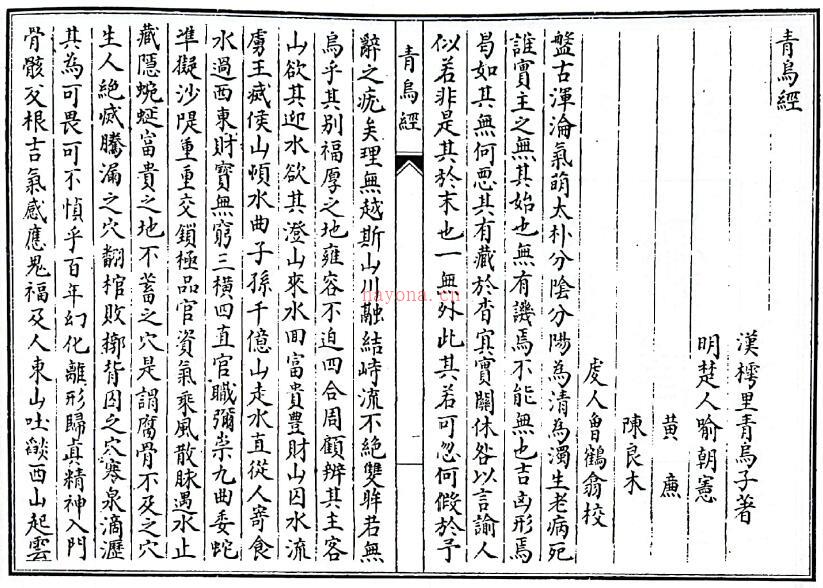 青烏經
漢樗里青烏子著
明楚人喻朝憲
黄㢘
陳良木
䖍人曾鶴翁校
盤古渾淪氣萌太朴分陰分陽為清為濁生老病死
誰實主之無其始也無有議焉不能無也吉凶形焉
曷如其無何惡其有藏於杳冥實關休咎以言諭人
似若非是其於末也一無外此其若可忽何假於予
青烏經
辭之疣矣理無越斯山川融結峙流不絶雙眸若無
烏乎其别福厚之地雍容不迫四合周顧辨其主客
山欲其迎水欲其澄山來水回富貴豊財山囚水流
虜王滅侯山頓水曲子孫千億山走水直從人寄食
水過西東財寶無窮三横四直官職彌崇九曲委蛇
準擬沙隄重重交鎖極品官資氣乗風散脉遇水止
藏隠蜿蜒富貴之地不蓄之穴是謂腐骨不及之穴
生人絶滅騰漏之穴翻棺敗槨背囚之穴寒泉滴瀝
其為可畏可不慎乎百年幻化離形歸真精神入門
骨骸反根吉氣感應鬼福及人東山吐燄西山起雲
nayona.cn